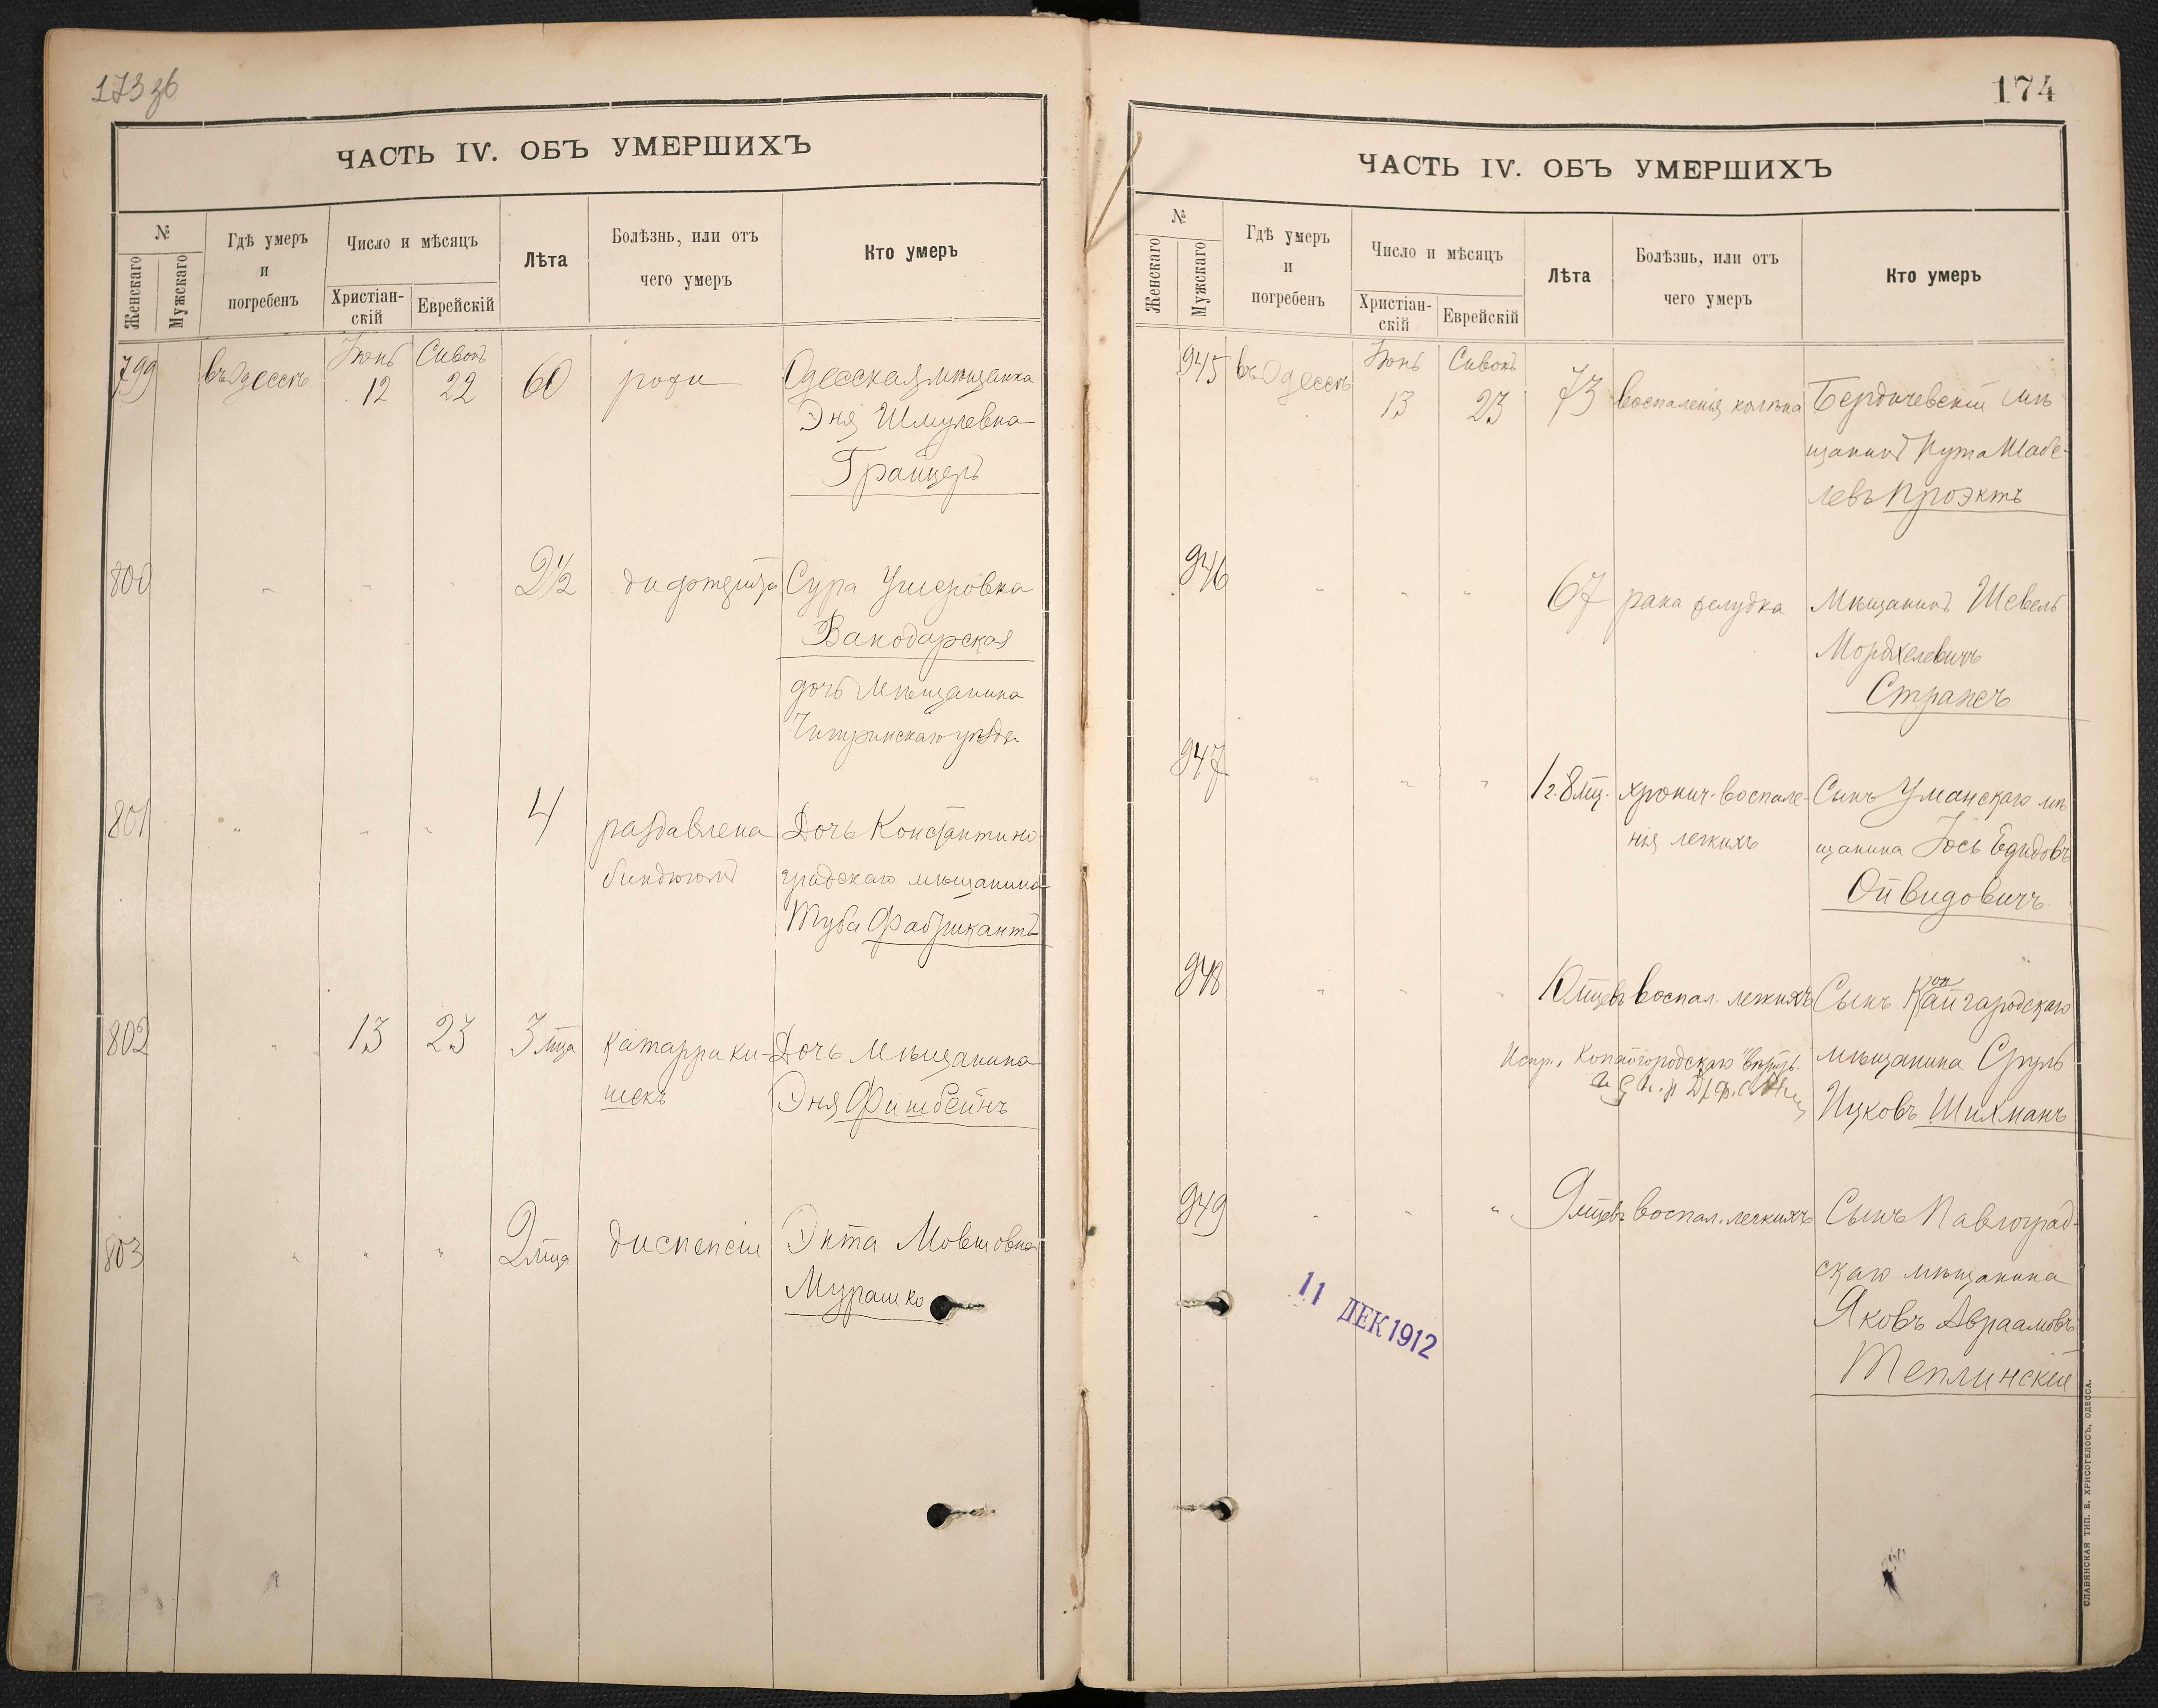 173 об
ЧАСТЬ IV. ОБЪ УМЕРШИХЪ
№
Женскаго
Мужскаго
Гдѣ умеръ
и
погребенъ
Число и мѣсяцъ
Христіан-
скій
Еврейскій
Лѣта
Болѣзнь, или отъ
чего умеръ
Кто умеръ
799 въ Одессѣ Іюнь 12 Сивонъ 22 60 рожи Одесская мѣщанка
Эня Шмулевна
Грайцеръ
800 " " " 2½ дифтерита Сура Ушеровна
Ванодарская
дочь мѣщанина
Чигиринскаго уѣзда
801 " " " 4 раздавлена Дочь Константино-
биндюгомъ градскаго мѣщанина
Туба Фабрикантъ
802 " 13 23 3 мца катарра ки- Дочь мѣщанина
шекъ Эня Фишбейнъ
803 " " " 2 мца диспепсіи Энта Мовшовна
Мурашко
174
ЧАСТЬ IV. ОБЪ УМЕРШИХЪ
№
Женскаго
Мужскаго
Гдѣ умеръ
и
погребенъ
Число и мѣсяцъ
Христіан-
скій
Еврейскій
Лѣта
Болѣзнь, или отъ
чего умеръ
Кто умеръ
945 въ Одессѣ Іюнь 13 Сивонъ 23 73 воспаленія колѣна Бердичевскій мѣ
щанинъ Нута Шабе-
левъ Проэктъ
946 " " " 67 рака желудка Мѣщанинъ Шевель
Мордхелевичъ
Стражеъ
947 " " " 1 г. 8 мц. хронич. воспале- Сынъ Уманскаго мѣ
нія легкихъ щанина Іось Едидовъ
Ойвидовичъ
948 " " " 10 мцевъ воспал. легкихъ Сынъ Кайгародскаго
оп
Испр. "Копайгородскаго" вѣрить. мѣщанина Сруль
Ицковъ Шихманъ
949 " " " 9 мцевъ воспал. легкихъ Сынъ Павлоград-
скаго мѣщанина
Яковъ Авраамовъ
Теплинскій
11 ДЕК 1912
СЛАВЯНСКАЯ ТИП. Е. ХРИСОГЕЛОСЪ, ОДЕССА.